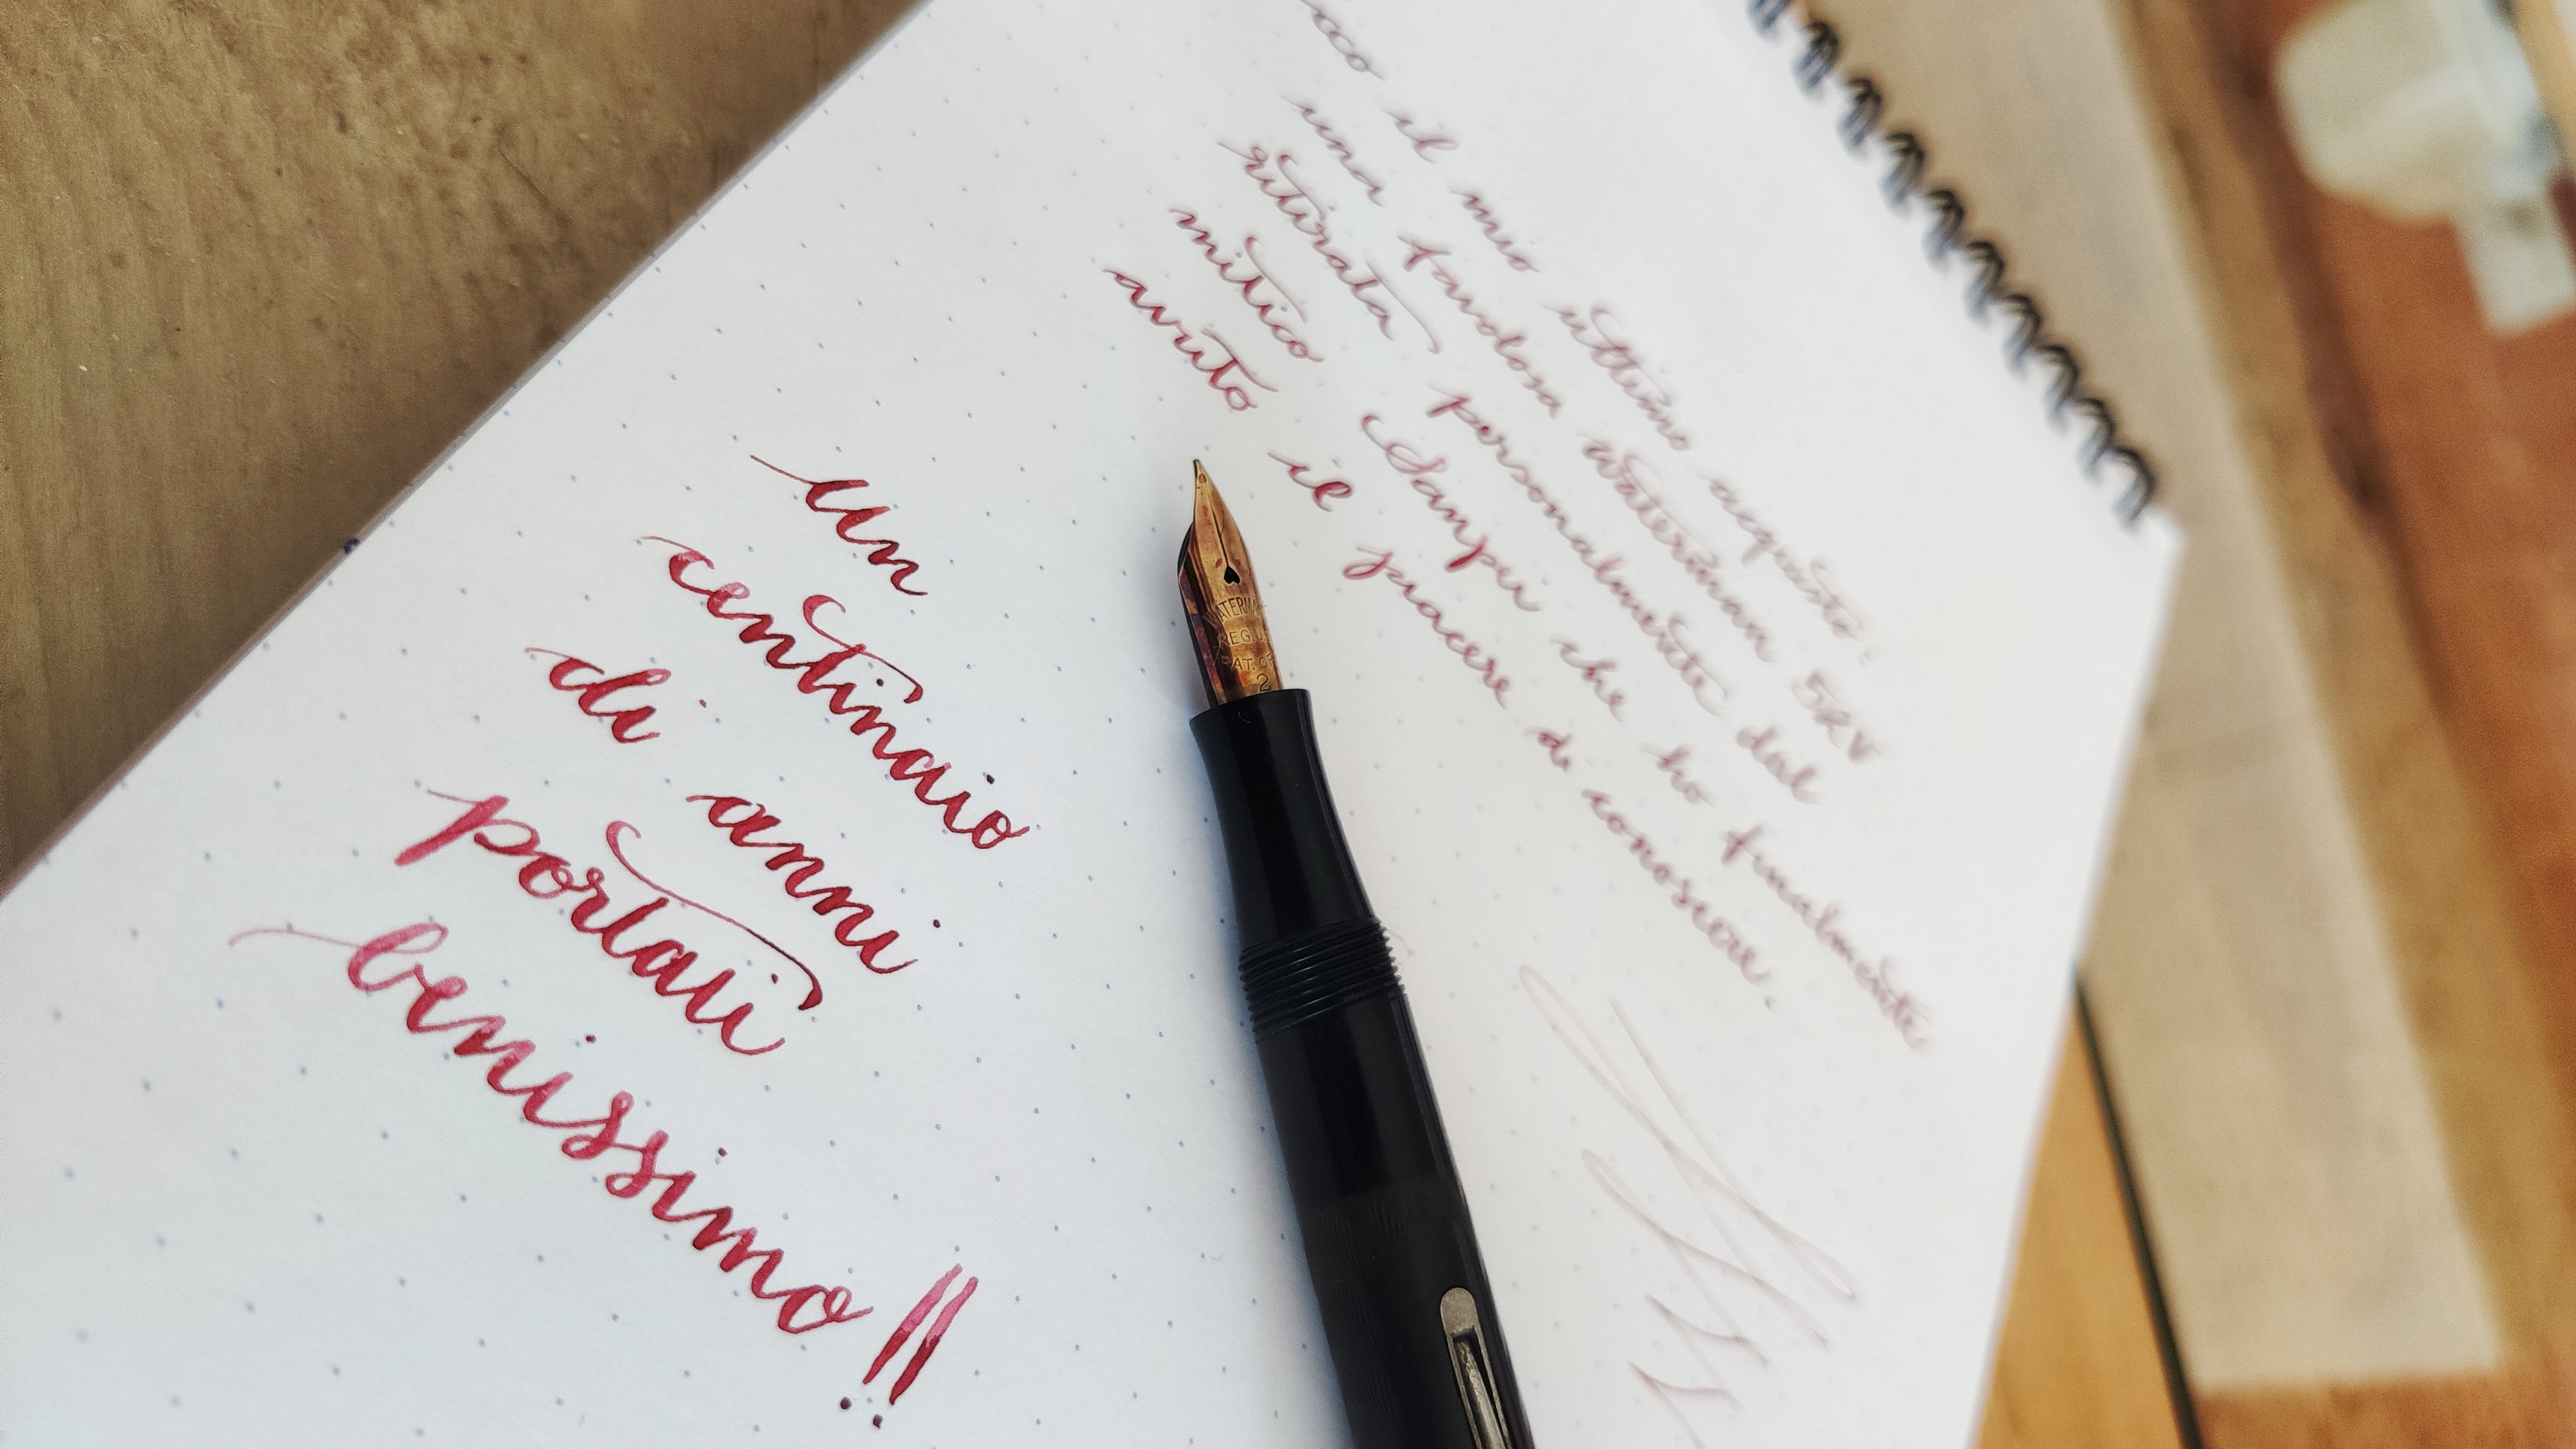 il mio ultimo acquisto:
una favolosa Waterman 52V
ritirata personalmente dal
mitico che ho finalmente
avuto il piacere di conoscere.
un
centinaio
di anni
portati
benissimo!!
WATERMA
REG.U
PAT. OF
2